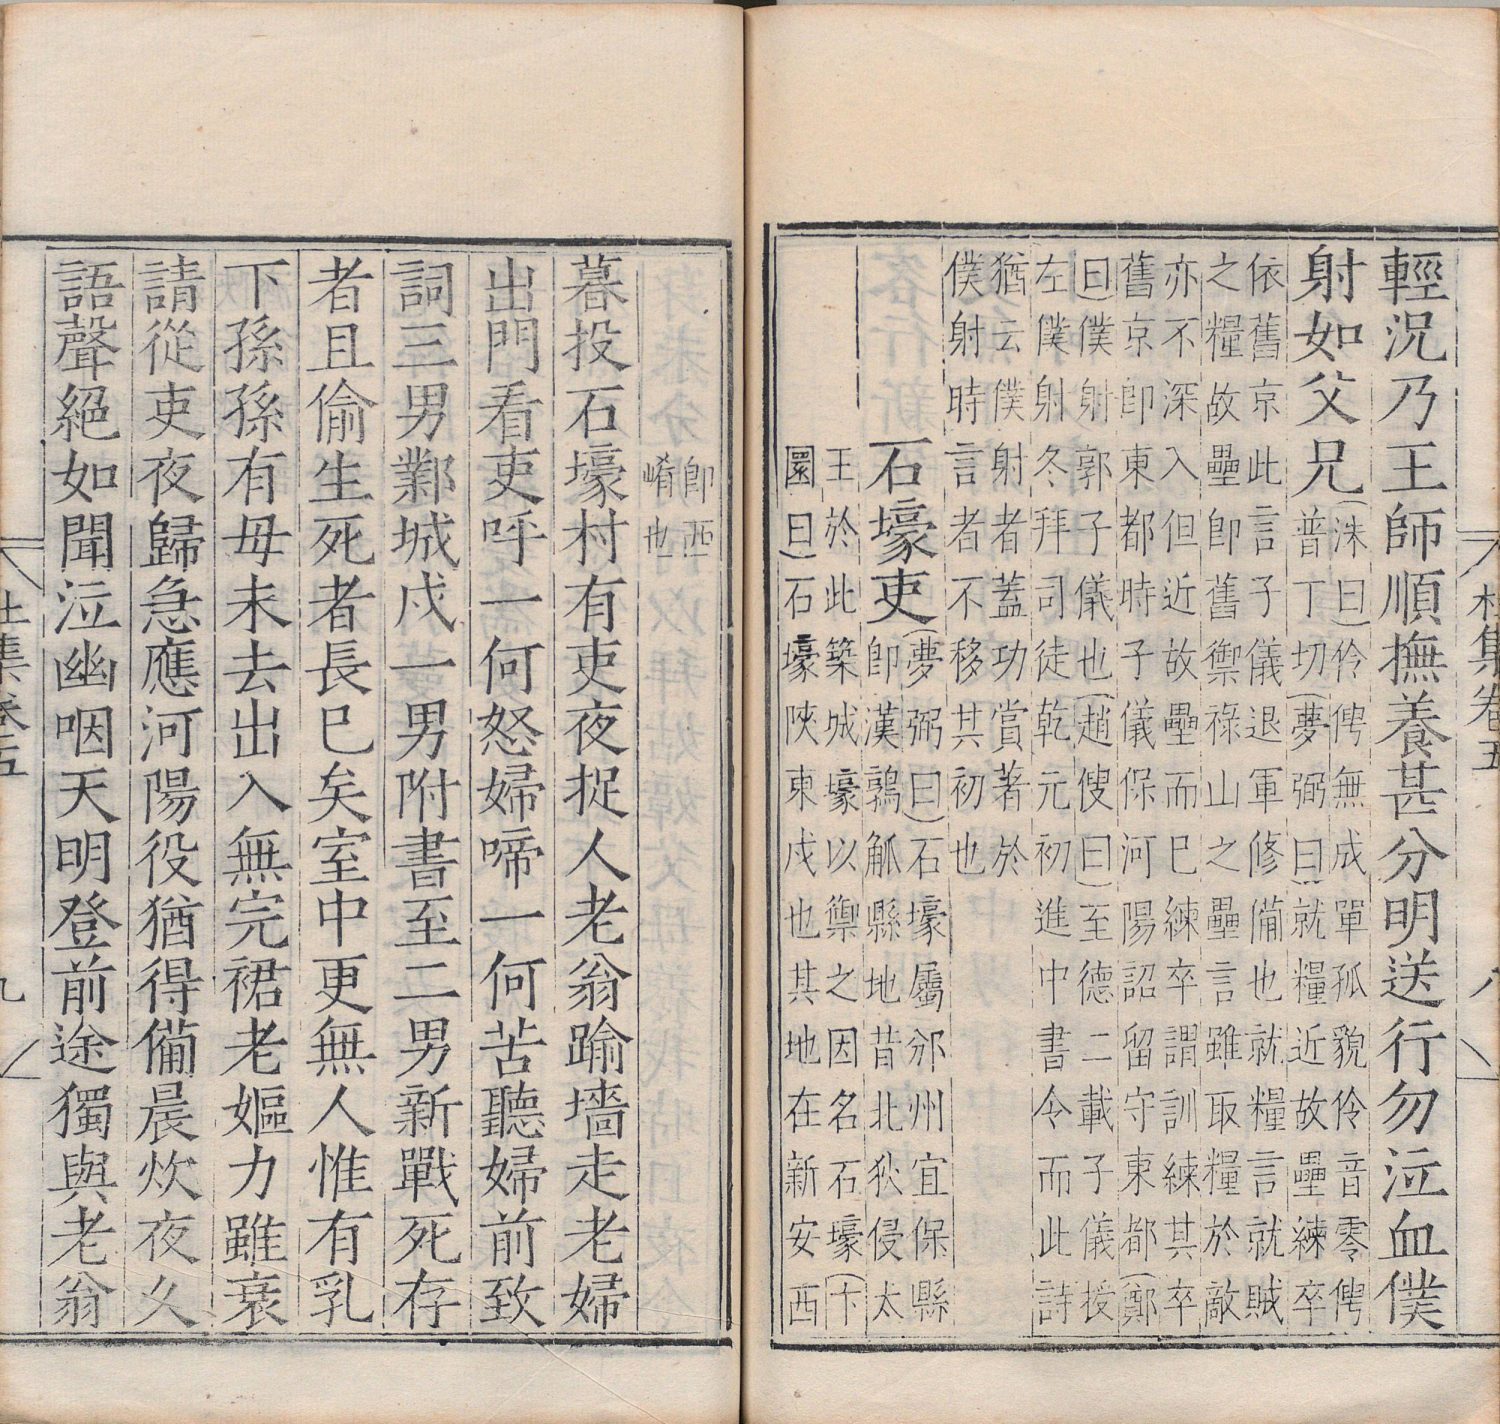 杜集卷五 八
輕況乃王師順撫養甚分明送行勿泣血僕
射如父兄
(洙曰)伶俜無成單孤貌伶音零俜
普丁切(夢弼曰)就糧近故壘練卒
依舊京此言子儀退軍修備也就糧言就賊
之糧故壘即舊禦祿山之壘言雖取糧於敵
亦不深入但近故壘而已練卒謂訓練其卒
舊京即東都時子儀保河陽詔留守東都(鄭
曰)僕射郭子儀也(趙傁曰)至德二載子儀授
左僕射冬拜司徒乾元初進中書令而此詩
猶云僕射者蓋功賞著於
僕射時言者不移其初也
石壕吏
(夢弼曰)石壕屬邠州宜保縣
即漢鶉觚縣地昔北狄侵太
王於此築城壕以禦之因名石壕(卞
圜曰)石壕陝東戍也其地在新安西
即西
崤也
暮投石壕村有吏夜捉人老翁踰墻走老婦
出門看吏呼一何怒婦啼一何苦聽婦前致
詞三男鄴城戍一男附書至二男新戰死存
者且偷生死者長已矣室中更無人惟有乳
下孫孫有母未去出入無完裙老嫗力雖衰
請從吏夜歸急應河陽役猶得備晨炊夜久
語聲絕如聞泣幽咽天明登前途獨與老翁
杜集卷五 九